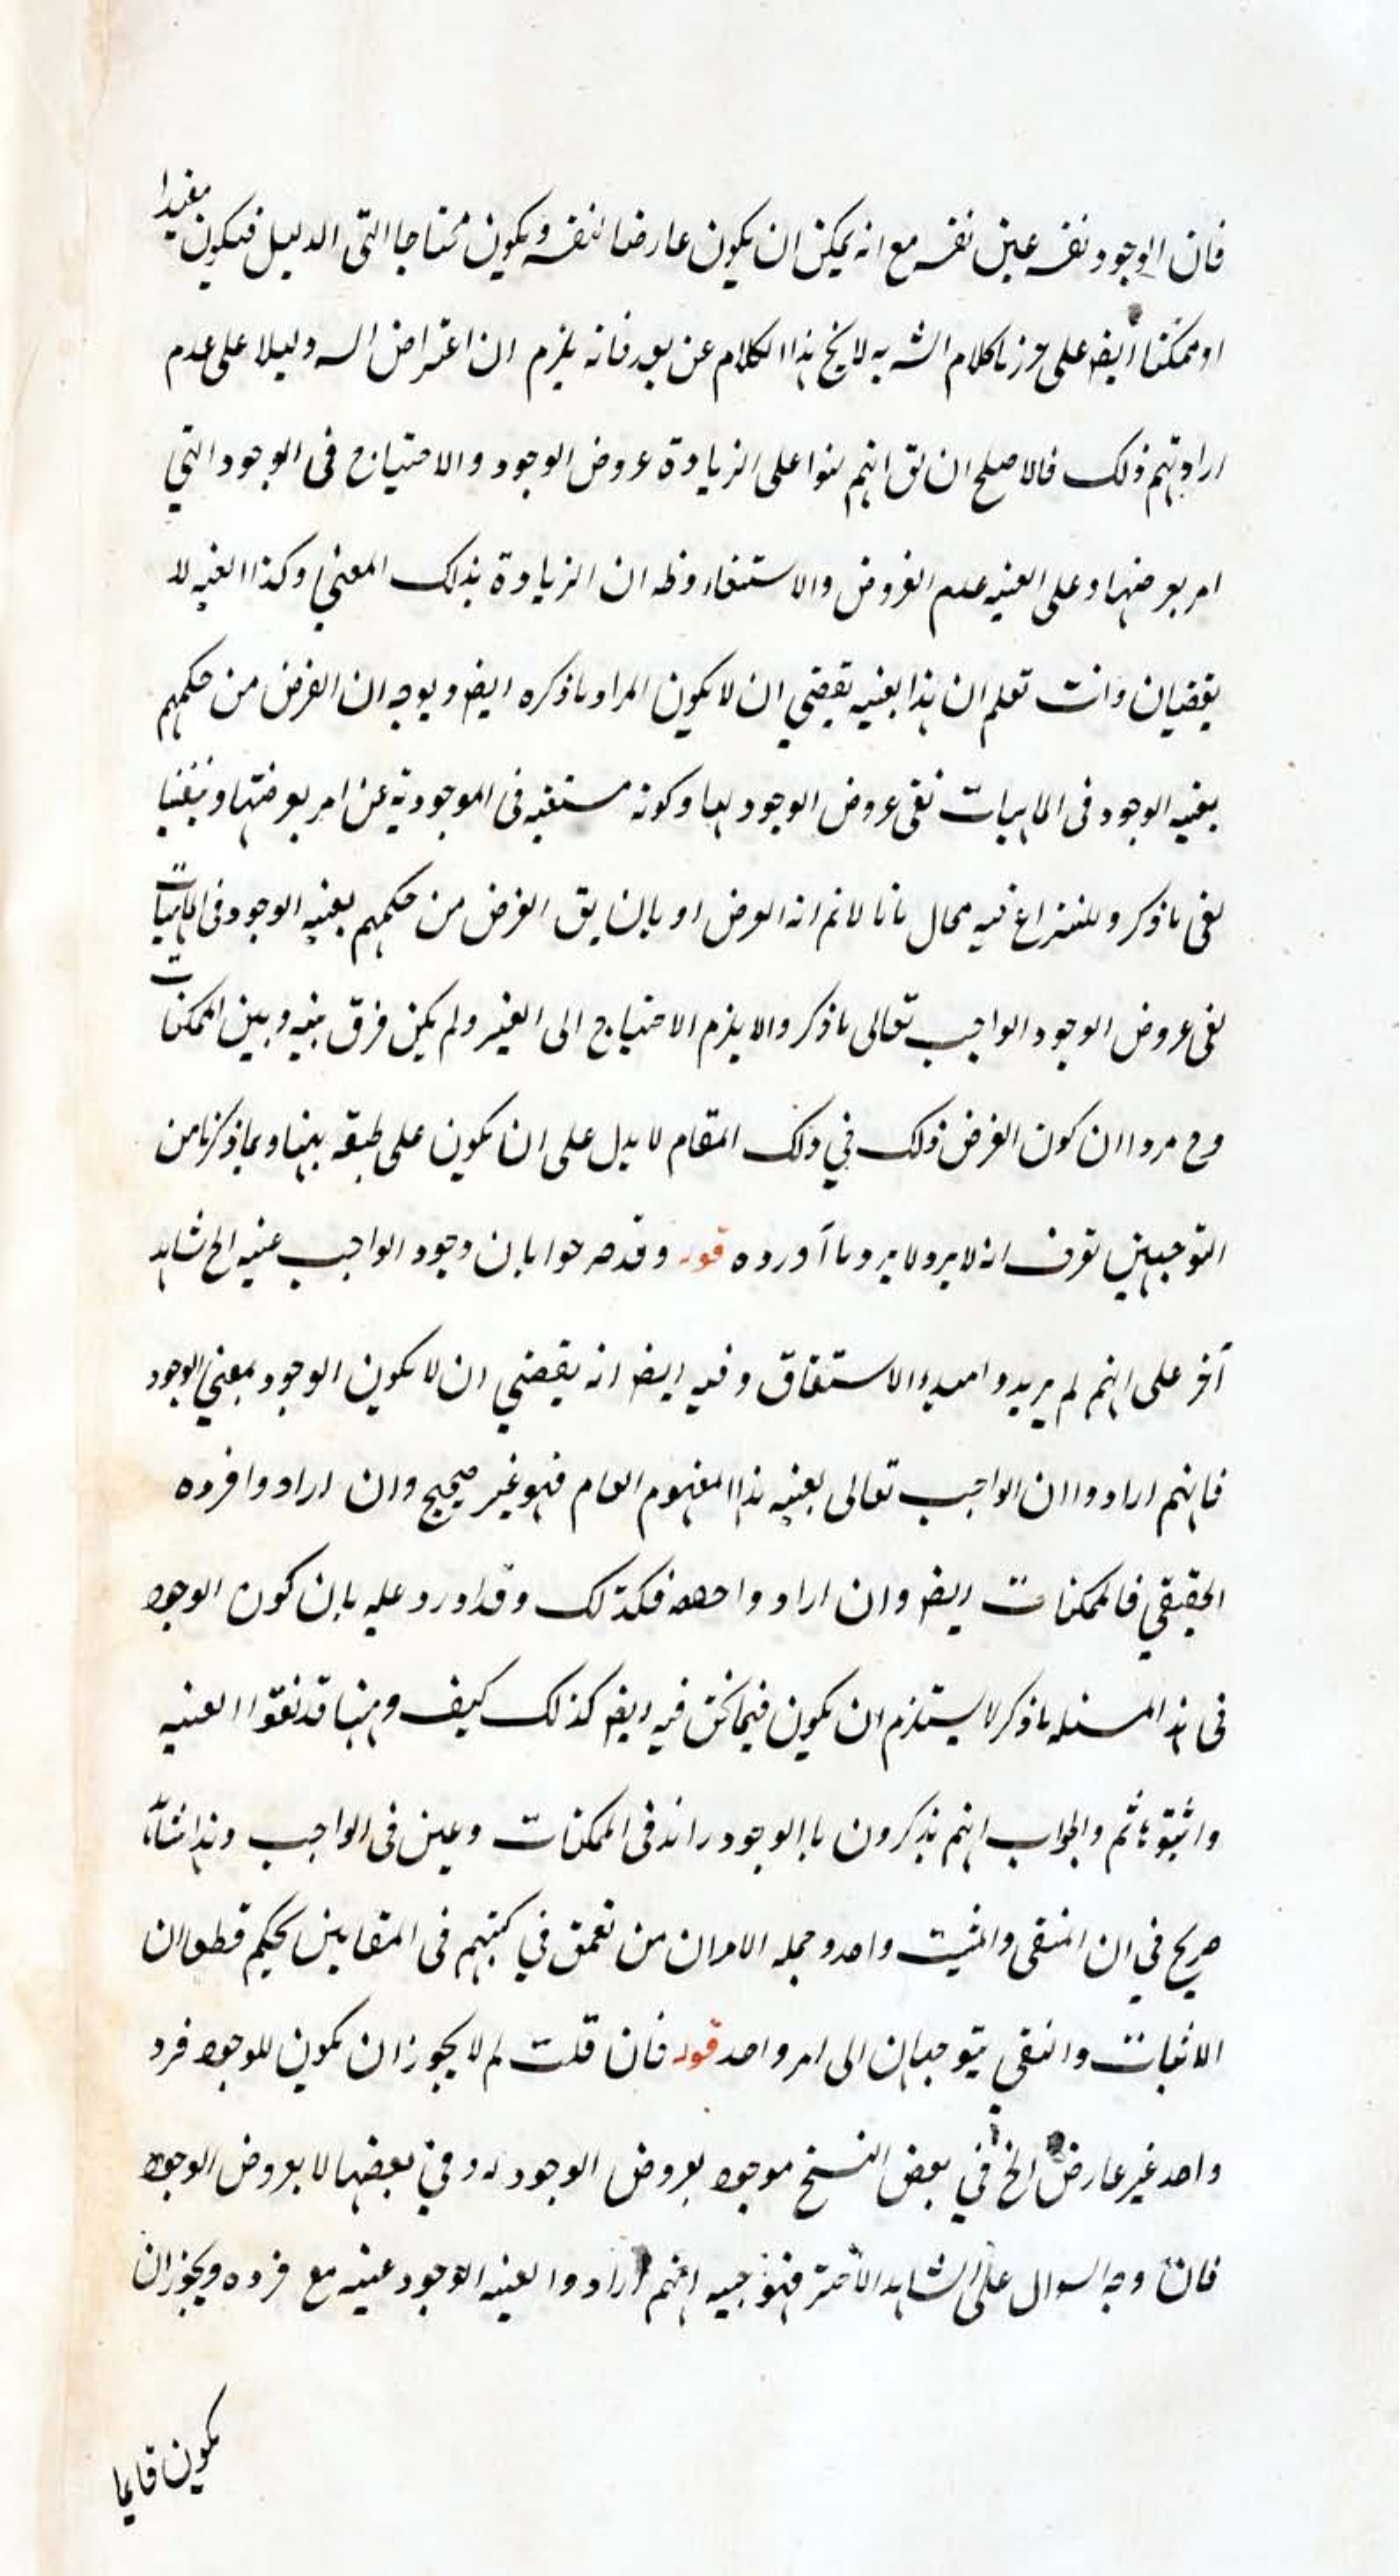 فان الوجود نفسه عين نفسه مع انه يمكن ان يكون عارضا لنفسه ويكون محتاجا الى الدليل فيكون مفيدا
او ممكنا ايضا على كلام الش لا يخ هذا الكلام عن بعد فانه يلزم ان اعتراض السيد دليلا على عدم
ارادتهم ذلك فالاصلح ان يق انهم بنوا على الزيادة عروض الوجود والاحتياج فى الوجود التي
امر بعروضها وعلى العينيه عدم العروض والاستغناء وظه ان الزيادة بذلك المعنى وكذا العينيه لا
يقتضيان وانت تعلم ان هذا بعينه يقتضي ان لا يكون المراد ما ذكره ايضا ويوجه ان الغرض من حكمهم
بعينيه الوجود فى الماهيات نفى عروض الوجود لها وكونه مستغنيه فى الموجودية عن امر بعروضها
نفى ما ذكر وللنزاع فيه مجال بانا لانم انه الغرض او بان يق الغرض من حكمهم بعينيه الوجود فى الماهيات
نفى عروض الوجود الواجب تعالى ما ذكر والا يلزم الاحتياج الى الغير ولم يكن فرق بينه وبين الممكنات
وح ان كون الغرض ذلك في ذلك المقام لا يدل على ان يكون على طبقه بهنا وبما ذكرنا من
التوجيهين تعرف انه لا يرد ما اورده قوله وقد صرحوا بان وجود الواجب عينه الخ شاهد
آخر على انهم لم يريدوا مبدء الاشتقاق وفيه ايضا انه يقتضي ان لا يكون الوجود بمعنى الوجود
فانهم ارادوا ان الواجب تعالى بعينه هذا المفهوم العام فهو غير صحيح وان ارادوا فرده
الحقيقي فالممكنات ايضا وان اراد واحدهه فكذلك وقد اورد عليه بان كون الوجود
فى هذا المسئله ما ذكر لا يستلزم ان يكون فيما نحن فيه ايضا كذلك كيف وههنا قد نفوا العينيه
واثبتوها ثم والجواب انهم يذكرون ان الوجود زائد فى الممكنات وعين فى الواجب وهذا
صريح في ان المنفى والمثبت واحد وجمله الامر ان من تعمق في كتبهم فى المقامين يحكم قطعا ان
الاثبات والنفي يتوجهان الى امر واحد قوله فان قلت لم لا يجوز ان يكون للوجود فرد
واحد غير عارض الخ في بعض النسخ موجود بعروض الوجود له وفي بعضها لا بعروض الوجود
فان وجه السوال على الشاهد الاخير فتوجيهه انهم ارادوا بعينيه الوجود عينيه مع فرده ويجوز ان
يكون قايما